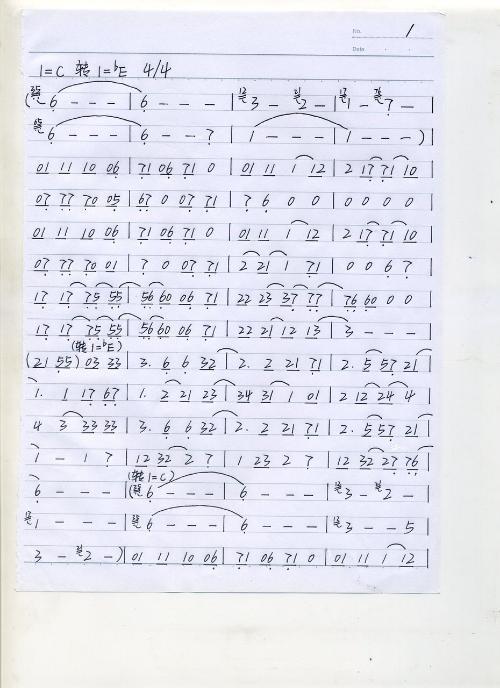 No. 1
Date
1=C 转 1=♭E 4/4
( 6 - - - | 6 - - - | 3 - 2 - | 1 - 7 - |
6 - - - | 6 - - 7 | 1 - - - | 1 - - - )
01 11 10 06 | 71 06 71 0 | 01 11 1 12 | 2 17 71 10 |
07 77 70 05 | 67 0 07 71 | 7 6 0 0 | 0 0 0 0 |
01 11 10 06 | 71 06 71 0 | 01 11 1 12 | 2 17 71 10 |
07 77 70 01 | 7 0 07 71 | 2 21 1 71 | 0 0 6 7 |
17 17 75 55 | 56 60 06 71 | 22 23 37 77 | 76 60 0 0 |
17 17 75 55 | 56 60 06 71 | 22 21 12 13 | 3 - - - |
(转1=♭E)
(21 55) 03 33 | 3. 6 6 32 | 2. 2 21 71 | 2. 5 57 21 |
1. 1 17 67 | 1. 2 21 23 | 34 31 1 01 | 2 12 24 4 |
4 3 33 33 | 3. 6 6 32 | 2. 2 21 71 | 2. 5 57 21 |
1 - 1 7 | 12 32 2 7 | 1 23 2 7 | 12 32 27 76 |
(转1=C)
6 - - - | ( 6 - - - | 6 - - - | 3 - 2 - |
1 - - - | 6 - - - | 6 - - - | 3 - - 5
3 - 2 - ) | 01 11 10 06 | 71 06 71 0 | 01 11 1 12 |